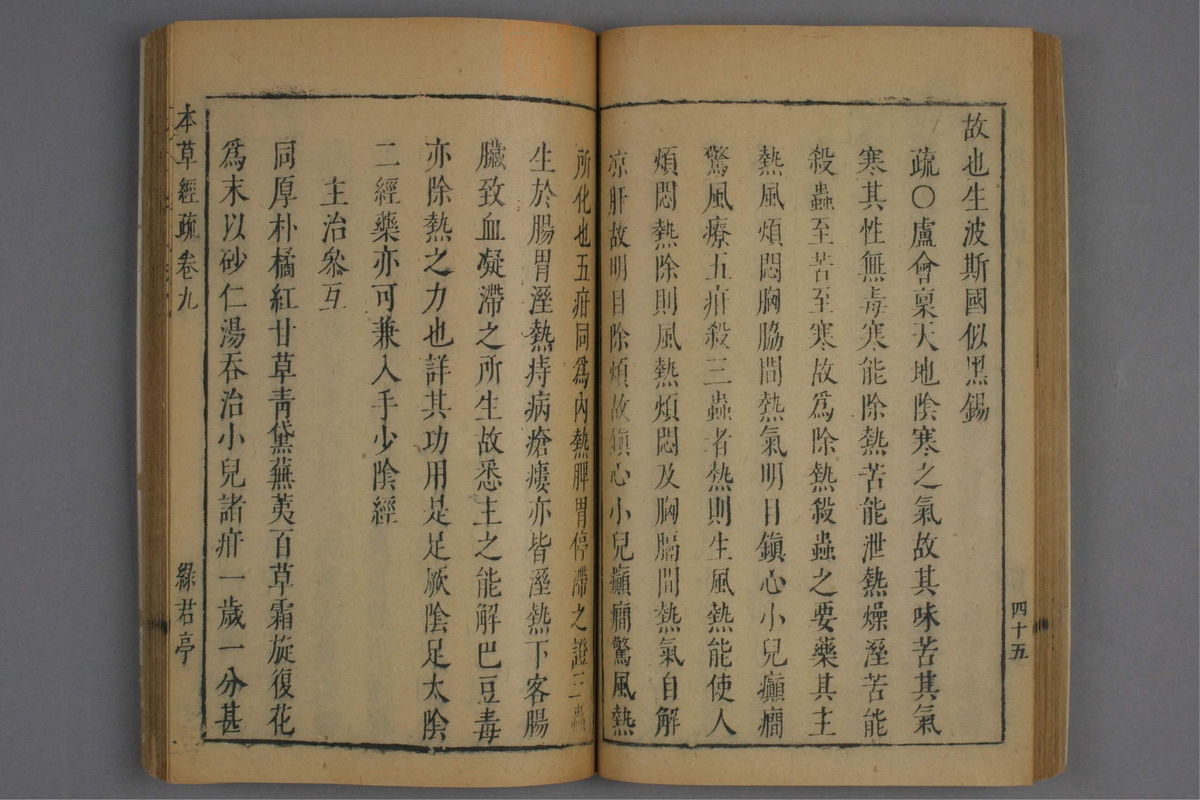 故也生波斯國似黑錫
疏○盧會稟天地陰寒之氣故其味苦其氣
寒其性無毒寒能除熱苦能泄熱燥溼苦能
殺蟲至苦至寒故爲除熱殺蟲之要藥其主
熱風煩悶胸脇間熱氣明目鎮心小兒癲癎
驚風療五疳殺三蟲者熱則生風熱能使人
煩悶熱除則風熱煩悶及胸膈間熱氣自解
凉肝故明目除煩故鎮心小兒癲癎驚風熱
所化也五疳同爲內熱脾胃停滯之證三蟲
生於腸胃溼熱痔病瘡瘻亦皆溼熱下客腸
臟致血凝滯之所生故悉主之能解巴豆毒
亦除熱之力也詳其功用是足厥陰足太陰
二經藥亦可兼入手少陰經
主治叅互
同厚朴橘紅甘草靑黛蕪荑百草霜旋復花
爲末以砂仁湯吞治小兒諸疳一歲一分甚
四十五
本草經疏卷九
綠君亭